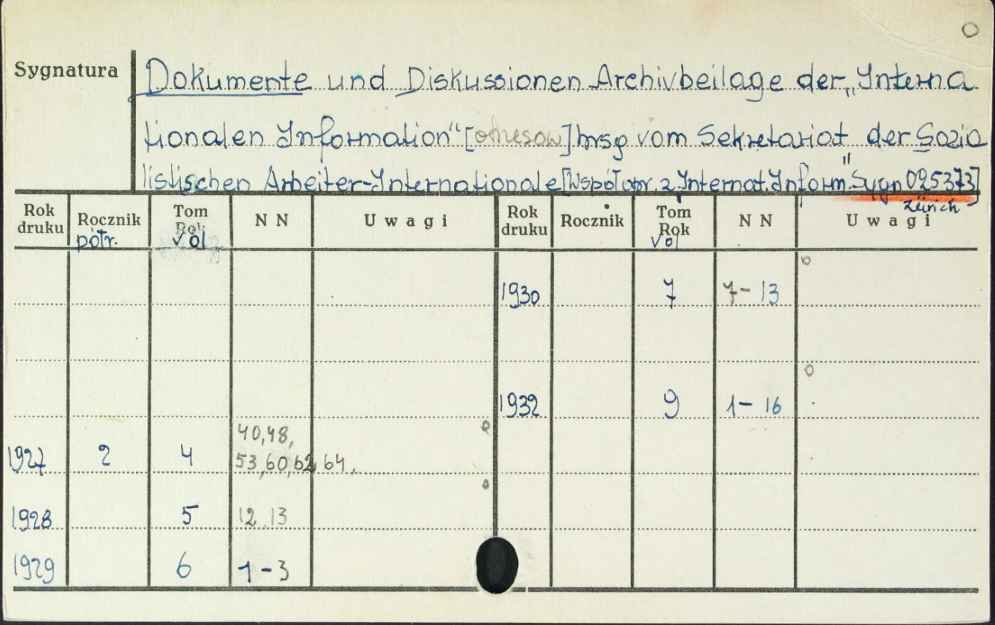 Sygnatura
Dokumente und Diskussionen Archivbeilage der „Interna
tionalen Information" [okresow] hrsg vom Sekretariat der Sozia
listischen Arbeiter-Internationale [Współopr. z Internat. Inform." Sygn 025373]
Zürich
Rok druku Rocznik Tom Rok N N Uwagi Rok druku Rocznik Tom Rok N N Uwagi
półr. vol vol
1930 7 7-13
1932 9 1-16
40,48,
1927 2 4 53,60,62,64.
1928 5 12 13
1929 6 1-3